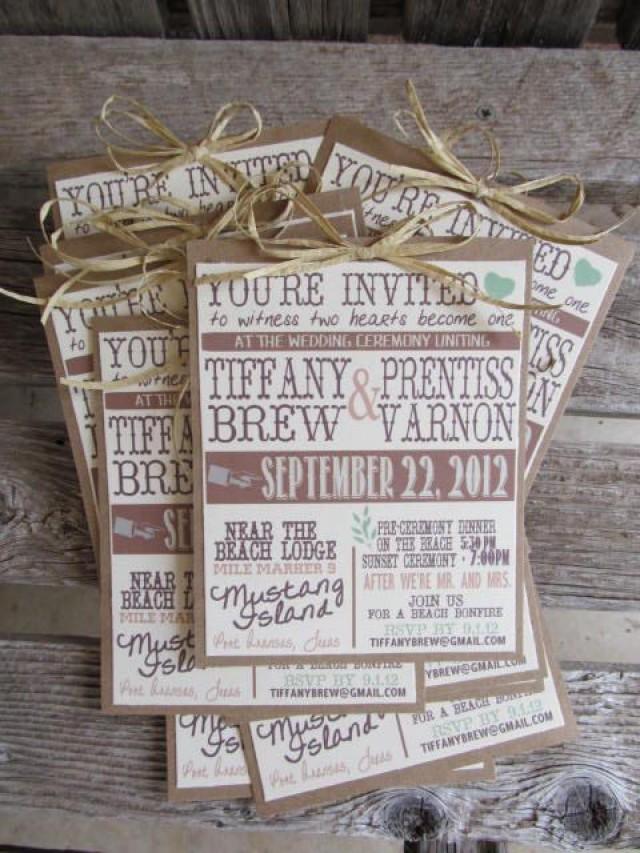 YOU'RE INVITED
to witness two hearts become one
AT THE WEDDING CEREMONY UNITING
TIFFANY & PRENTISS
BREW VARNON
SEPTEMBER 22, 2012
NEAR THE
BEACH LODGE
MILE MARKER 9
Mustang
Island
Port Aransas, Texas
PRE-CEREMONY DINNER
ON THE BEACH 5:30 PM
SUNSET CEREMONY • 7:00PM
AFTER WE'RE MR. AND MRS.
JOIN US
FOR A BEACH BONFIRE
RSVP BY 9.1.12
TIFFANYBREW@GMAIL.COM
YOU'RE INVITED
to witness two hearts
YOU'RE INVITED
become one
NEAR T
BEACH L
MILE MAR
Must
Isla
Port Aransas, Texas
FOR A BEACH BONFIRE
RSVP BY 9.1.12
TIFFANYBREW@GMAIL.COM
Island
Port Aransas, Texas
FOR A BEACH BONFIRE
RSVP BY 9.1.12
TIFFANYBREW@GMAIL.COM